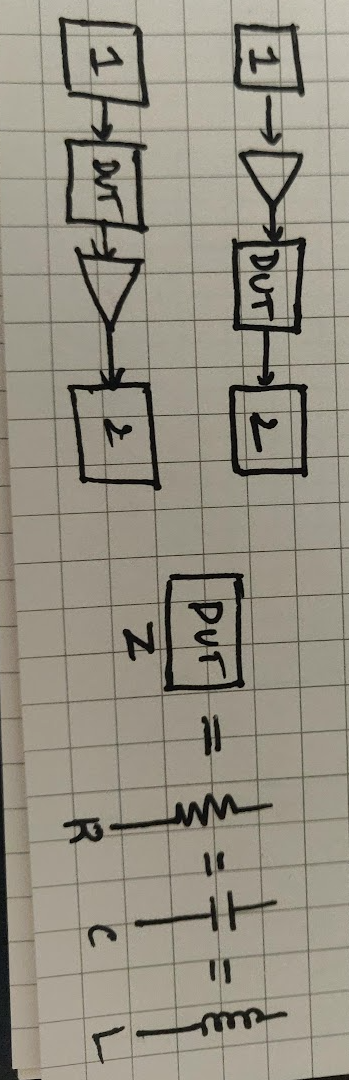 1 DUT 2
1 DUT 2
DUT = = =
Z R C L